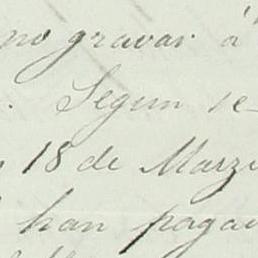 no gravar á
. Segun se
18 de Marz
han paga